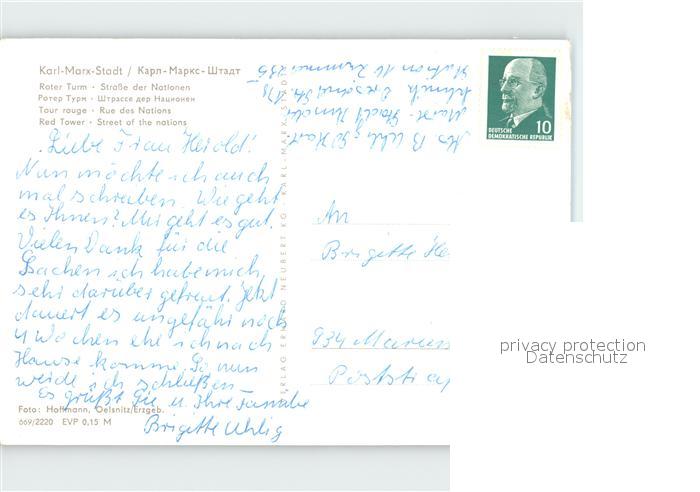 Karl-Marx-Stadt / Карл-Маркс-Штадт
Roter Turm · Straße der Nationen
Ротер Турм · Штрассе дер Национен
Tour rouge · Rue des Nations
Red Tower · Street of the nations
Liebe Frau Herold!
Nun möchte ich auch
mal schreiben. Wie geht
es Ihnen? Mir geht es gut.
Vielen Dank für die
Sachen ich habe mich
sehr darüber gefreut. Jetzt
dauert es ungefähr noch
4 Wochen ehe ich nach
Hause komme. So nun
werde ich schließen
Es grüßt Sie u. Ihre Familie
Brigitte Uhlig
Foto: Hoffmann, Oelsnitz/Erzgeb.
669/2220 EVP 0,15 M
VERLAG ERHARD NEUBERT KG KARL-MARX-STADT
B. Uhlig
Marx-Stadt
Station 16 Zimmer 235
DEUTSCHE
DEMOKRATISCHE REPUBLIK
10
An
Brigitte He
934 Marien
Poststra
privacy protection
Datenschutz